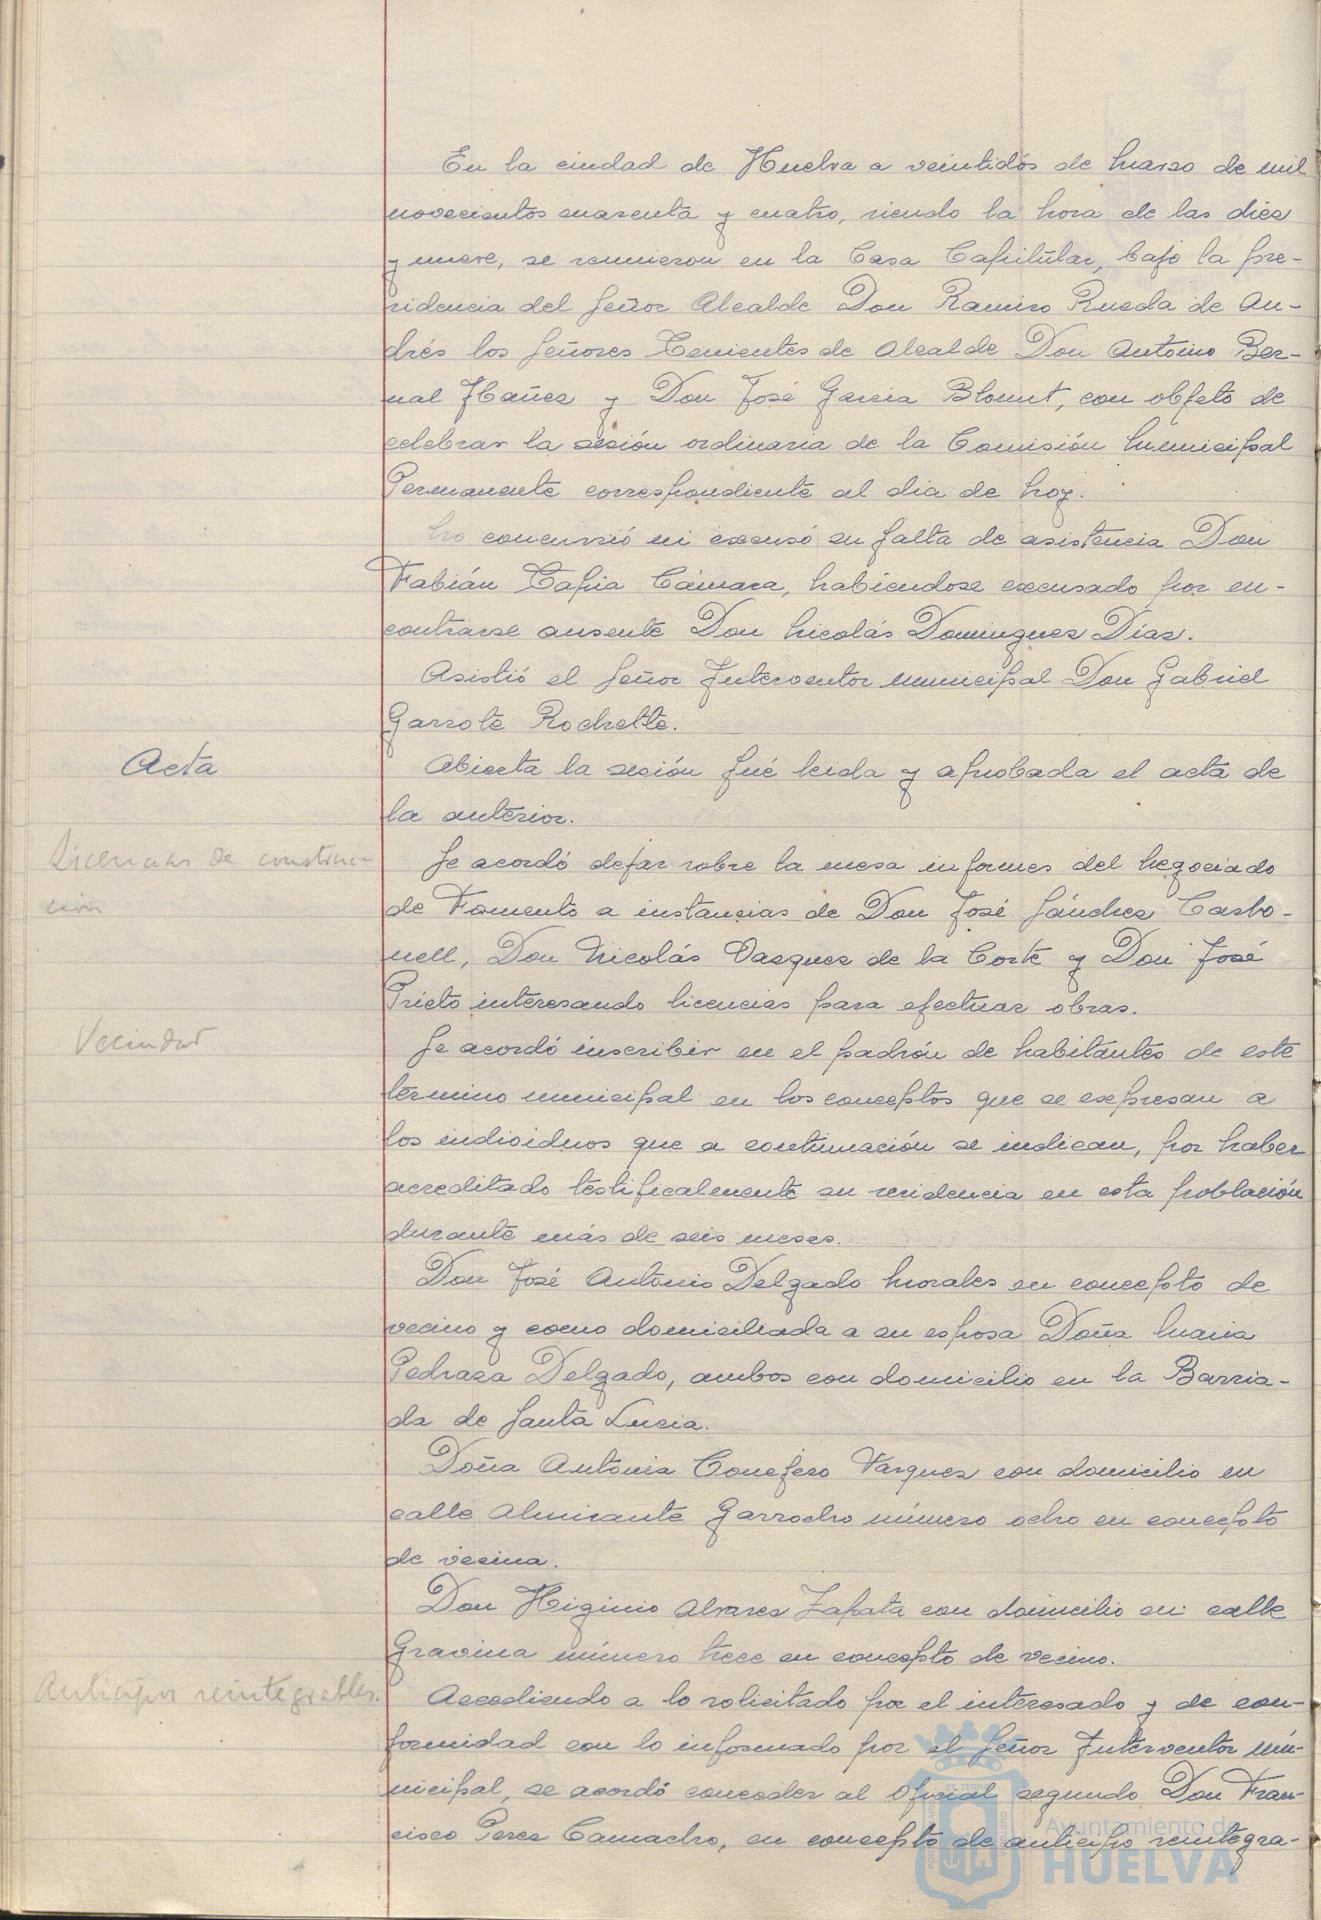 En la ciudad de Huelva a veintidós de marzo de mil
novecientos cuarenta y cuatro, siendo la hora de las diez
y nueve, se reunieron en la Casa Capitular, bajo la pre-
sidencia del Señor Alcalde Don Ramiro Rueda de An-
drés los Señores Tenientes de Alcalde Don Antonio Ber-
nal Ibañez y Don José Garcia Blount, con objeto de
celebrar la sesión ordinaria de la Comisión Municipal
Permanente correspondiente al dia de hoy.
No concurrió ni excusó su falta de asistencia Don
Fabián Tapia Cámara, habiendose excusado por en-
contrarse ausente Don Nicolás Dominguez Díaz.
Asistió el Señor Interventor municipal Don Gabriel
Garrote Rochette.
Acta
Abierta la sesión fué leida y aprobada el acta de
la anterior.
Licencias de construc-
ción
Se acordó dejar sobre la mesa informes del Negociado
de Fomento a instancias de Don José Sánchez Carbo-
nell, Don Nicolás Vazquez de la Corte y Don José
Prieto interesando licencias para efectuar obras.
Vecindad
Se acordó inscribir en el padrón de habitantes de este
término municipal en los conceptos que se expresan a
los individuos que a continuación se indican, por haber
acreditado testificalmente su residencia en esta población
durante más de seis meses.
Don José Antonio Delgado Morales en concepto de
vecino y como domiciliada a su esposa Doña Maria
Pedraza Delgado, ambos con domicilio en la Barria-
da de Santa Lucia.
Doña Antonia Conejero Vazquez con domicilio en
calle Almirante Garrocho número ocho en concepto
de vecina.
Don Higinio Alvarez Zapata con domicilio en calle
Gravina número trece en concepto de vecino.
Anticipos reintegrables.
Accediendo a lo solicitado por el interesado y de con-
formidad con lo informado por el Señor Interventor mu-
nicipal, se acordó conceder al Oficial segundo Don Fran-
cisco Perez Camacho, en concepto de anticipo reintegra-
Ayuntamiento de
HUELVA